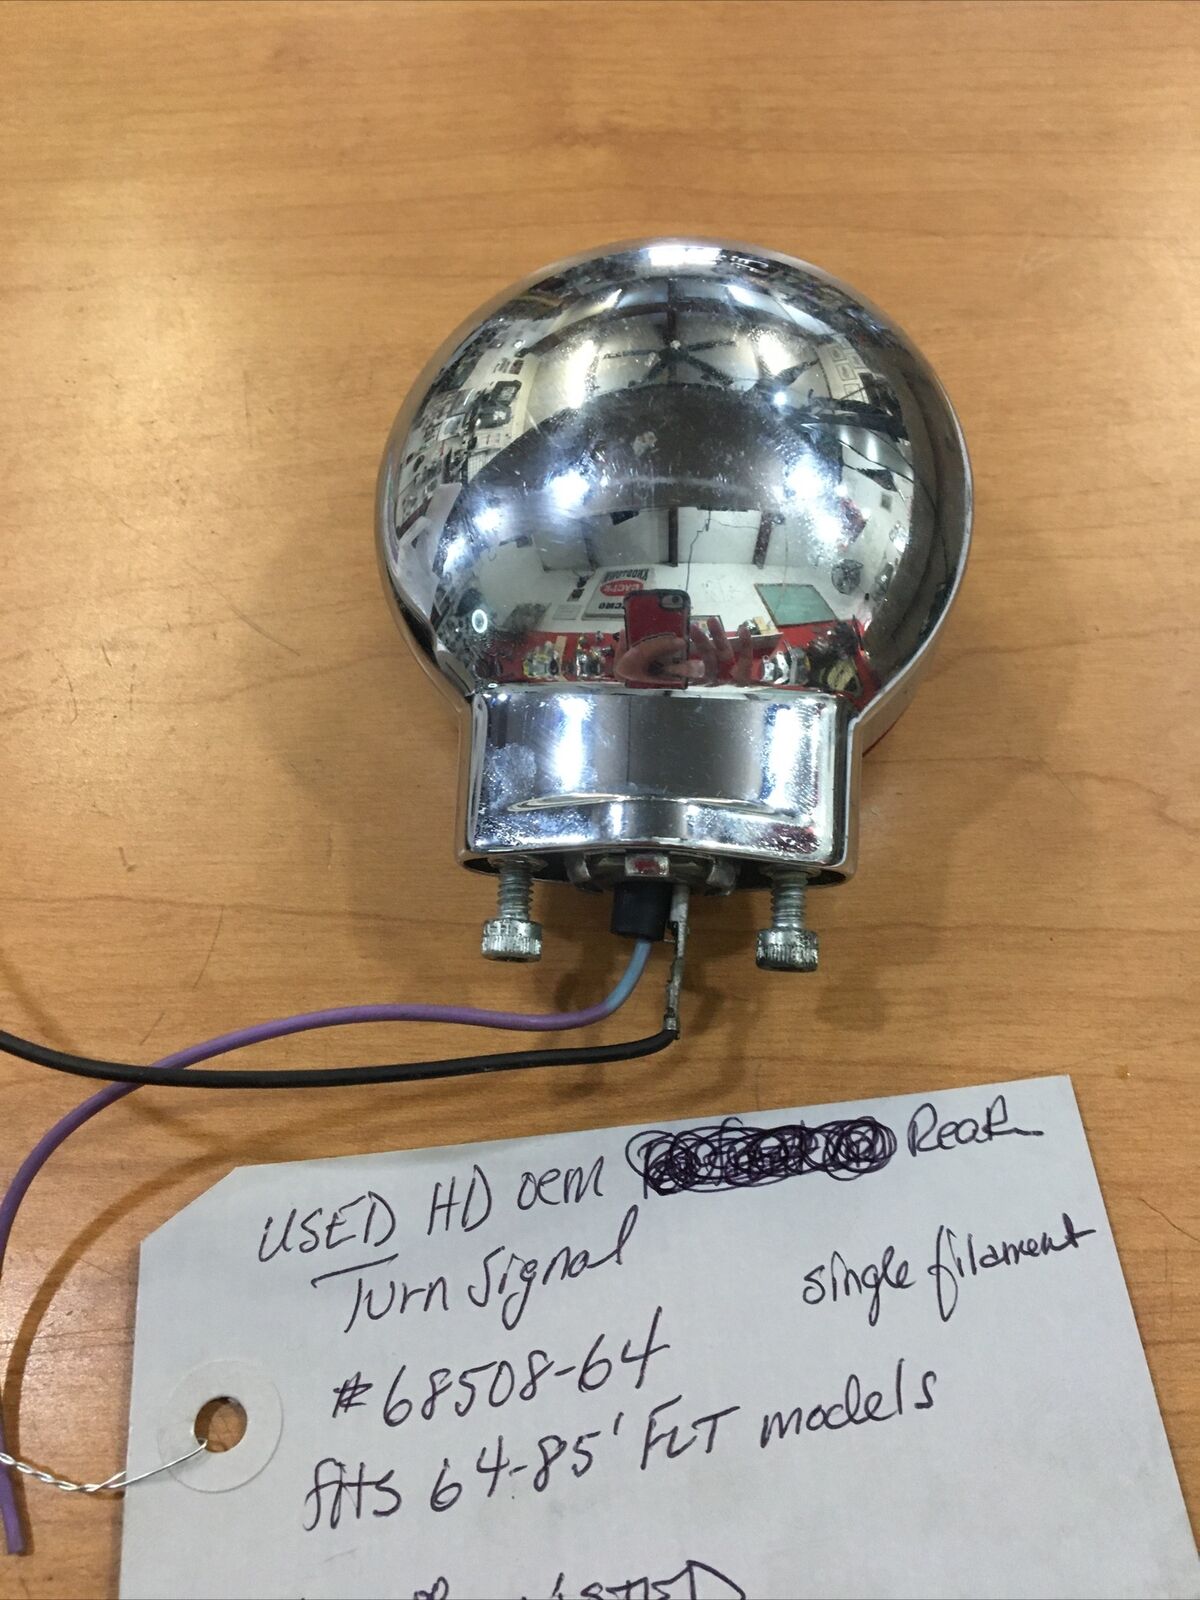 USED HD OEM Rear
Turn Signal
single filament
#68508-64
fits 64-85' FLT models